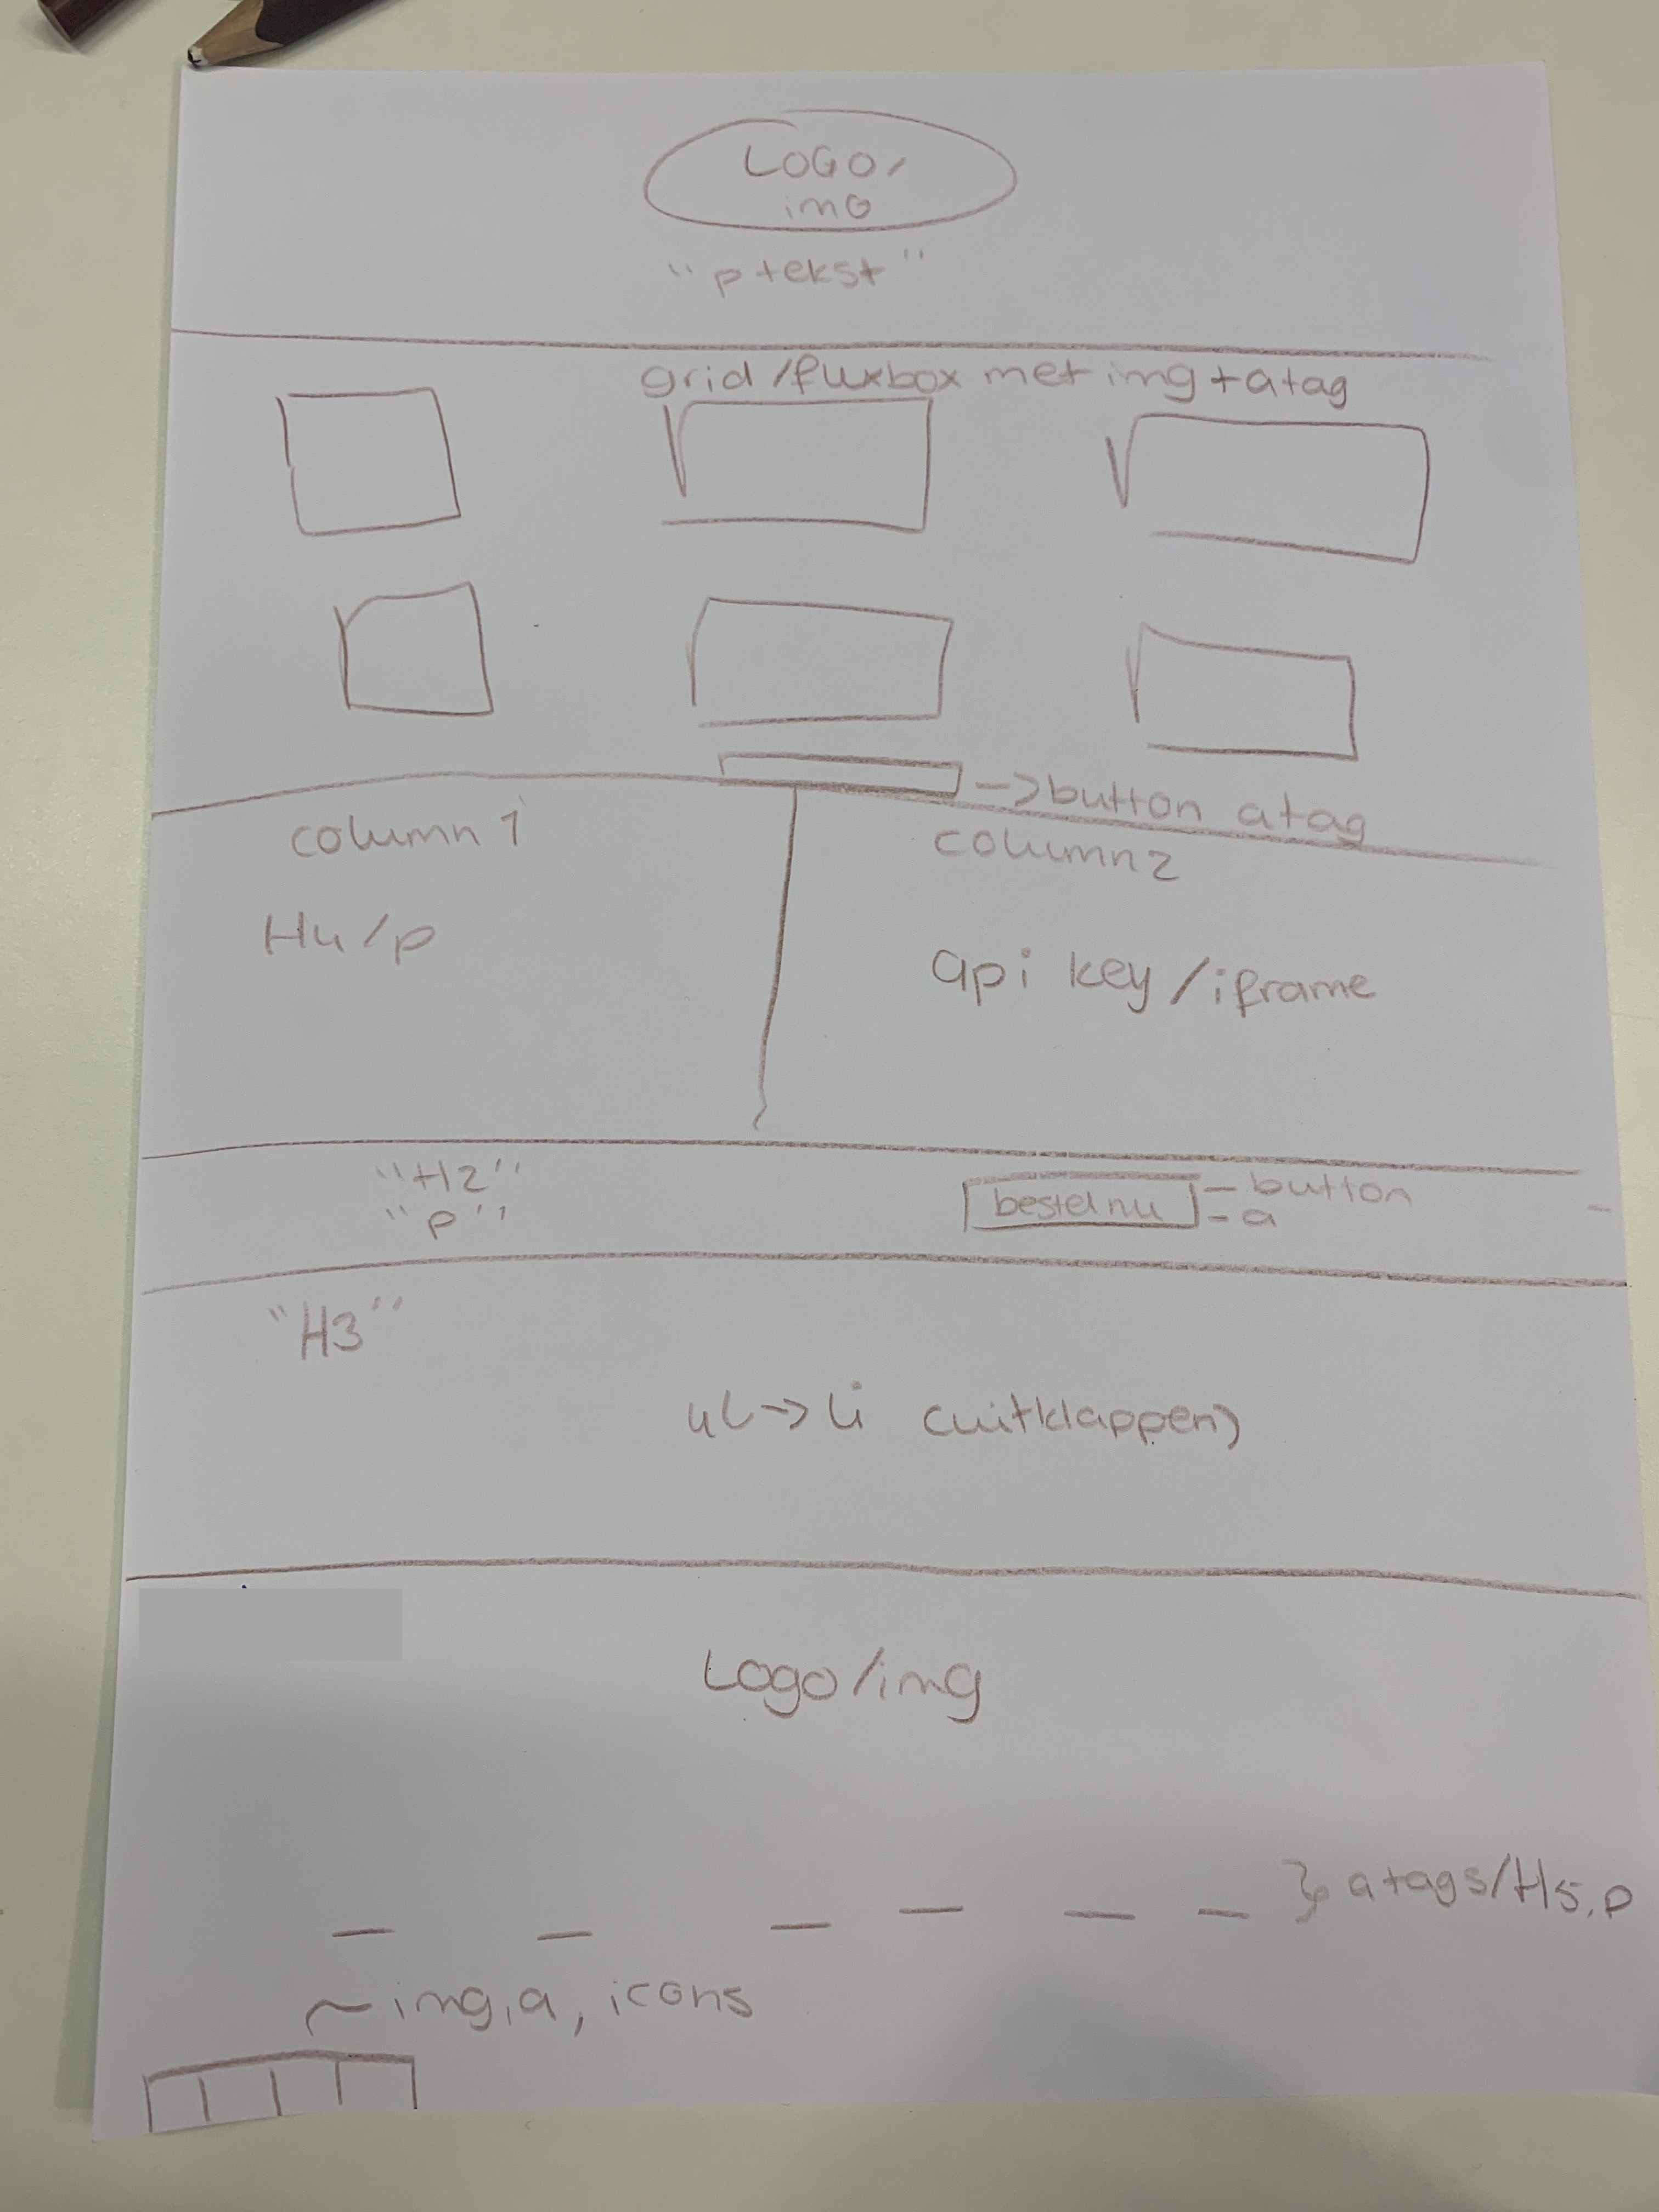 LOGO/
img
"p tekst"
grid/fluxbox met img + a tag
-> button a tag
column 1
column 2
H4/p
api key/iframe
"H2"
"p"
bestel nu
- button
- a
"H3"
ul -> li (uitklappen)
Logo/img
} a tags/H5, p
~ img, a, icons